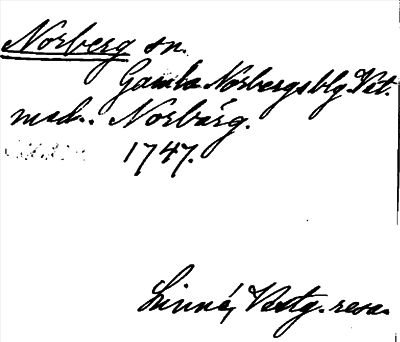 Norberg sn.
Gamla Norbergs blg. Vst.
mad.. Norbärg.
1747.
Linné, Vestg. resa.